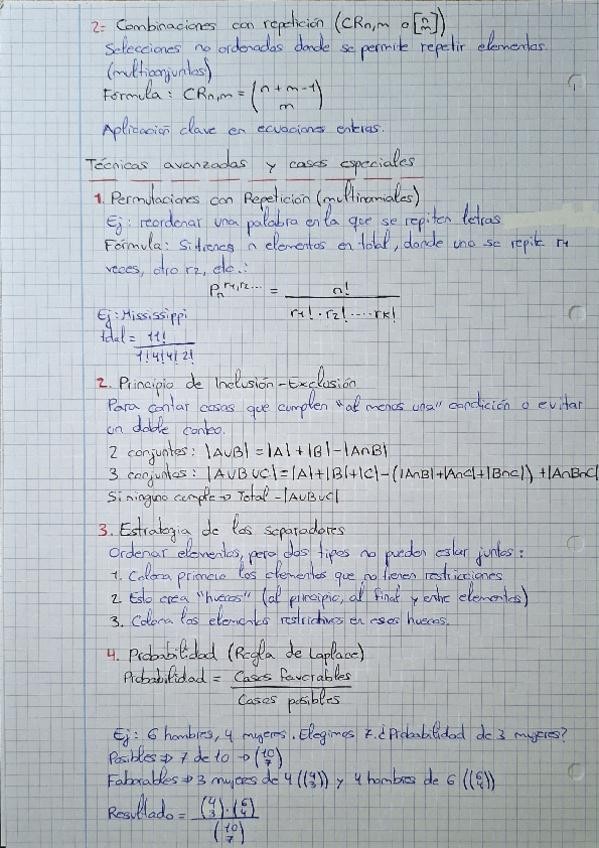 2- Combinaciones con repetición (CRn,m o [n m])
Selecciones no ordenadas donde se permite repetir elementos.
(multiconjuntos)
Fórmula: CRn,m = (n+m-1 m)
Aplicación clave en ecuaciones enteras.
Técnicas avanzadas y casos especiales
1. Permutaciones con Repetición (multinomiales)
Ej: reordenar una palabra en la que se repiten letras
Fórmula: Si tienes n elementos en total, donde uno se repite r1
veces, otro r2, etc.:
Pn^r1,r2... = n! / r1! · r2! · ... · rk!
Ej: Mississippi
total = 11! / 1!4!4!2!
2. Principio de Inclusión-Exclusión
Para contar cosas que cumplen "al menos una" condición o evitar
un doble conteo.
2 conjuntos: |A∪B| = |A| + |B| - |A∩B|
3 conjuntos: |A∪B∪C| = |A| + |B| + |C| - (|A∩B| + |A∩C| + |B∩C|) + |A∩B∩C|
Si ninguno cumple → Total - |A∪B∪C|
3. Estrategia de los separadores
Ordenar elementos, pero dos tipos no pueden estar juntos:
1. Coloca primero los elementos que no tienen restricciones
2. Esto crea "huecos" (al principio, al final y entre elementos)
3. Coloca los elementos restrictivos en esos huecos.
4. Probabilidad (Regla de Laplace)
Probabilidad = Casos favorables / Casos posibles
Ej: 6 hombres, 4 mujeres. Elegimos 7. ¿Probabilidad de 3 mujeres?
Posibles ⇒ 7 de 10 → (10 7)
Faborables ⇒ 3 mujeres de 4 ((4 3)) y 4 hombres de 6 ((6 4))
Resultado = (4 3) · (6 4) / (10 7)